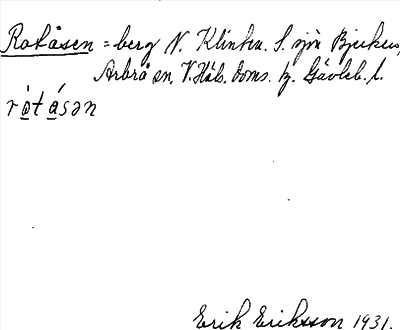 Rotåsen = berg N. Klinkn. S. sjön Bjuken,
Arbrå sn. V. Häls. doms. hg. Gävleb. l.
rótásən
Erik Eriksson 1931.